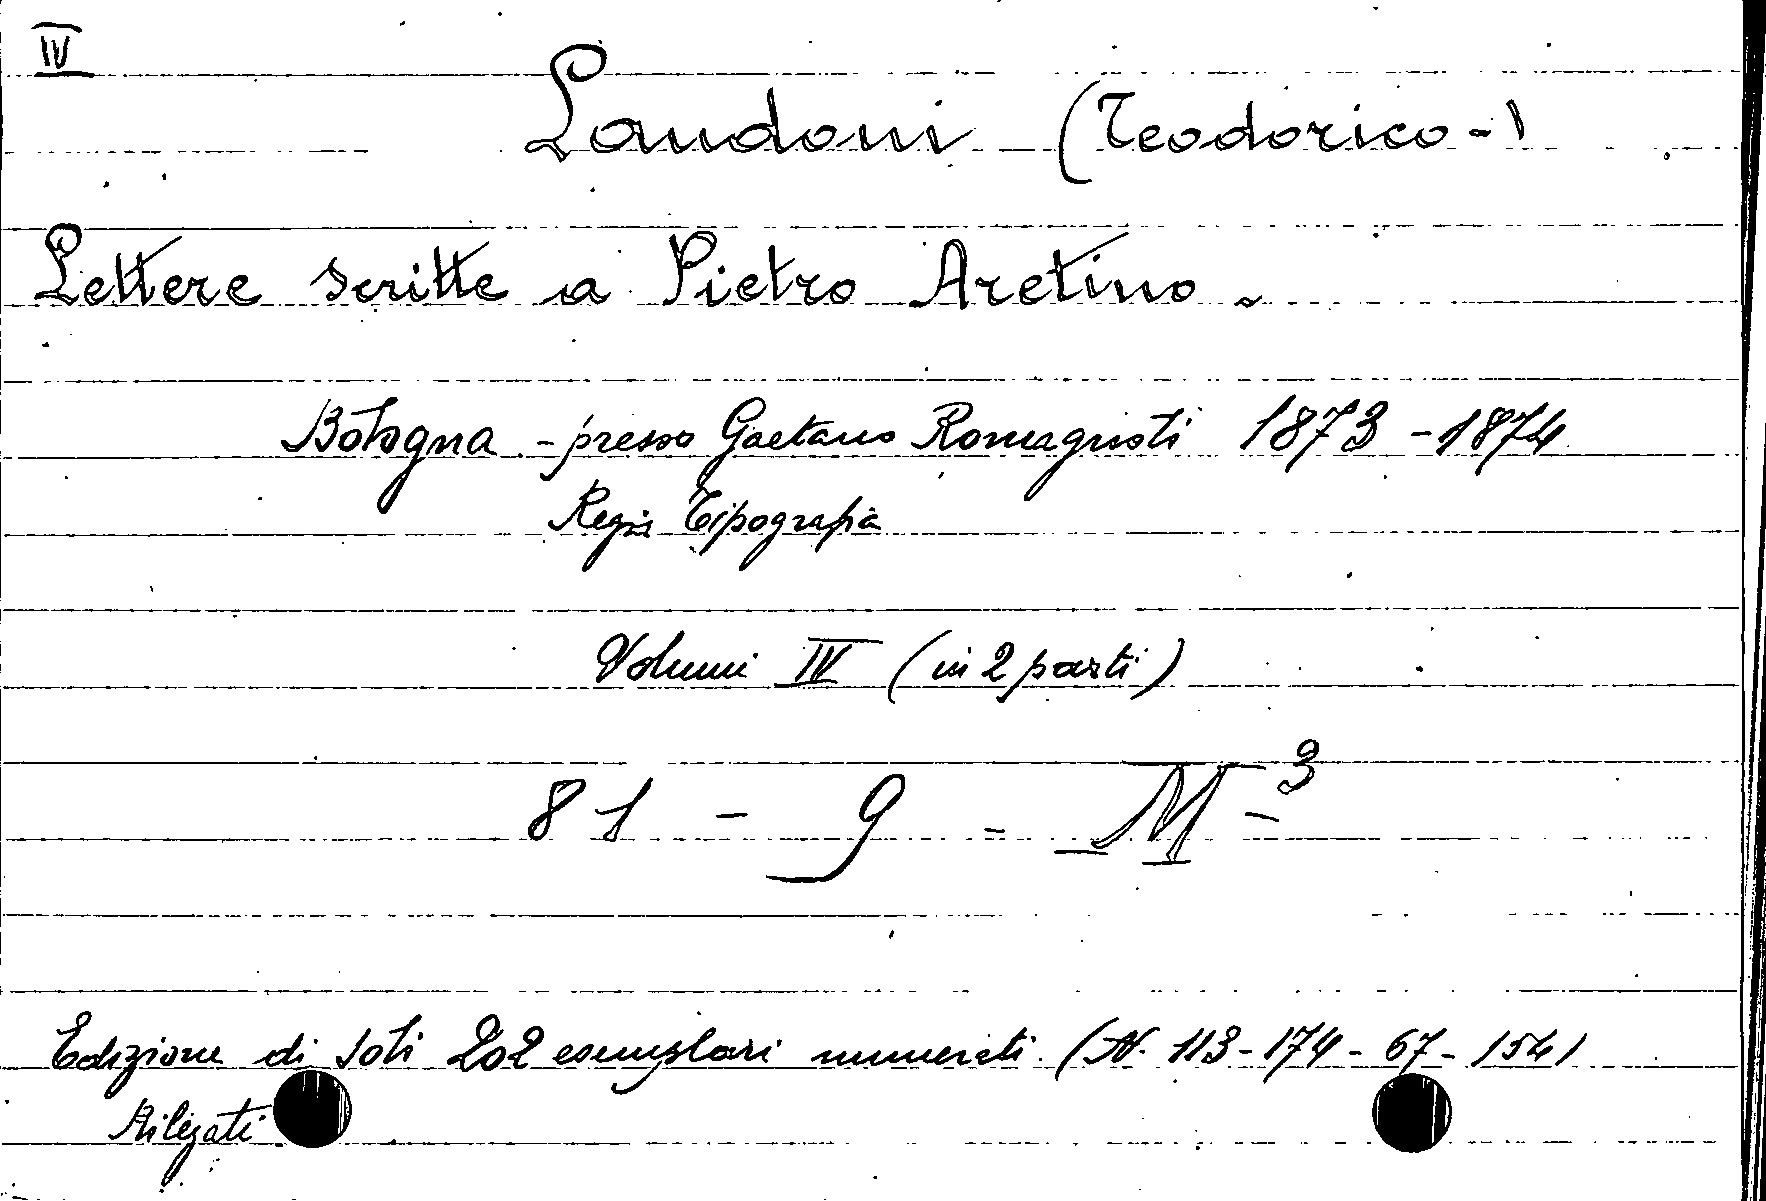 IV
Landoni (Teodorico-)
Lettere scritte a Pietro Aretino.
Bologna - presso Gaetano Romagnoli 1873 - 1874
Regia Tipografia
Volumi IV (in 2 parti)
81 - 9 - M - 3
Edizione di soli 202 esemplari numerati (N. 113 - 174 - 67 - 154)
Rilegati